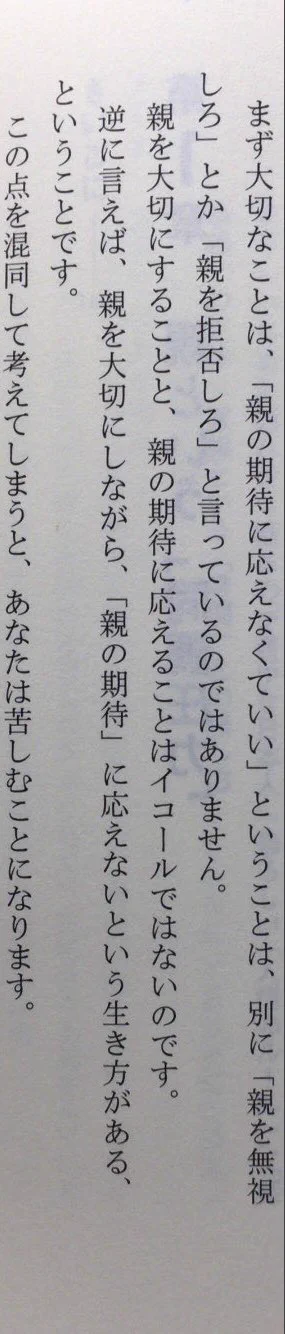 まず大切なことは、「親の期待に応えなくていい」ということは、別に「親を無視
しろ」とか「親を拒否しろ」と言っているのではありません。
親を大切にすることと、親の期待に応えることはイコールではないのです。
逆に言えば、親を大切にしながら、「親の期待」に応えないという生き方がある、
ということです。
この点を混同して考えてしまうと、あなたは苦しむことになります。